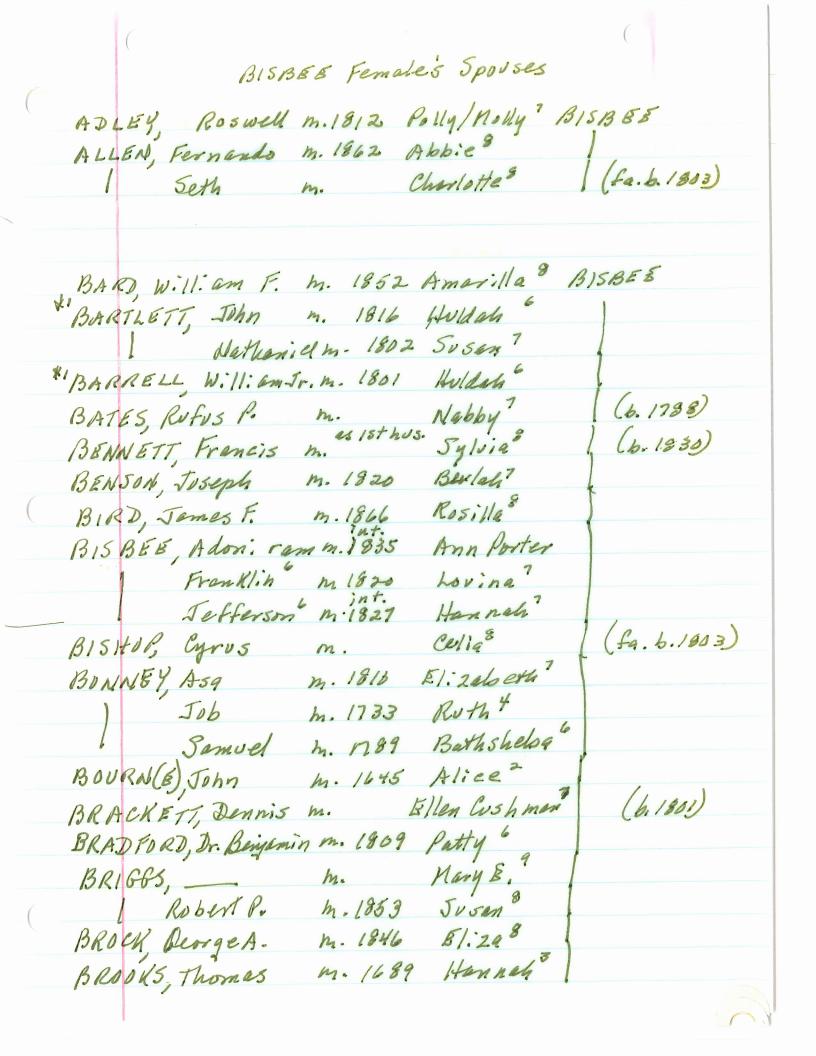 BISBEE Female's Spouses
ADLEY, Roswell m. 1812 Polly/Molly⁷ BISBEE
ALLEN, Fernando m. 1862 Abbie⁸
Seth m. Charlotte⁸ (fa. b. 1803)
BARD, William F. m. 1852 Amarilla⁸ BISBEE
*¹ BARTLETT, John m. 1816 Huldah⁶
Nathaniel m. 1802 Susan⁷
*¹ BARRELL, William Jr. m. 1801 Huldah⁶
BATES, Rufus P. m. Nabby⁷ (b. 1788)
BENNETT, Francis m. as 1st hus. Sylvia⁸ (b. 1830)
BENSON, Joseph m. 1820 Beulah⁷
BIRD, James F. m. 1866 Rosilla⁸
BISBEE, Adoniram m. int. 1835 Ann Porter
Franklin⁶ m 1820 Lovina⁷
Jefferson⁶ m. int. 1827 Hannah⁷
BISHOP, Cyrus m. Celia⁸ (fa. b. 1803)
BONNEY, Asa m. 1816 Elizabeth⁷
Job m. 1733 Ruth⁴
Samuel m. 1789 Bathsheba⁶
BOURN(E), John m. 1645 Alice²
BRACKETT, Dennis m. Ellen Cushman⁷ (b. 1801)
BRADFORD, Dr. Benjamin m. 1809 Patty⁶
BRIGGS, ____ m. Mary E.⁹
Robert P. m. 1853 Susan⁸
BROCK, George A. m. 1846 Eliza⁸
BROOKS, Thomas m. 1689 Hannah³